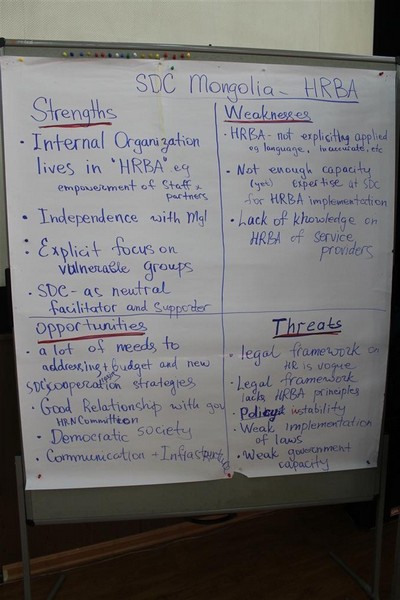 SDC Mongolia - HRBA
Strengths
• Internal Organization
lives in "HRBA" eg
empowerment of Staff x
partners
• Independence with Mgl
• Explicit focus on
vulnerable groups
• SDC - as neutral
facilitator and Supporter
Weaknesses
• HRBA - not expliciting applied
eg language, inaccurate, etc
• Not enough capacity
(yet) expertise at SDC
for HRBA implementation
• Lack of knowledge on
HRBA of service
providers
Opportunities
• a lot of needs to
addressing + budget and new
SDC's cooperation strategies
• Good Relationship with gov
HRN Committion
• Democratic society
• Communication + Infrastr
Threats
• legal framework on
HR is vogue
• Legal framework
lacks HRBA principles
• Policy instability
• Weak implementation
of laws
• Weak government
capacity